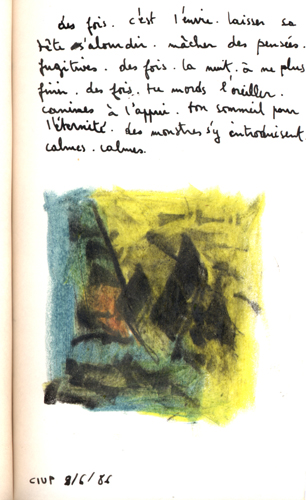 des fois. c'est l'envie. laisser sa
tête s'alourdir. mâcher des pensées.
fugitives. des fois. la nuit. à ne plus
finir. des fois. tu mords l'oreiller.
canines à l'appui. ton sommeil pour
l'éternité. des monstres s'y introduisent
calmes. calmes.
CIUP 8/6/86